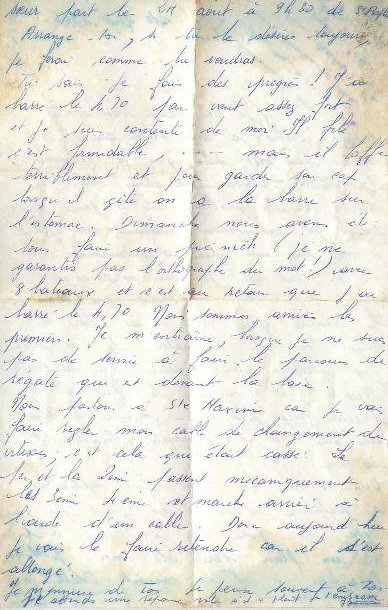 sœur part le 21 août à 9 h 30 de
Arrange-toi, si tu le désires toujours,
je ferai comme tu voudras.
Tu sais je fais des progrès ! J'ai
barré le 4,70 par vent assez fort
et je suis contente de moi. Il file
c'est formidable, ---- mais il
terriblement et pour garder son cap
lorsqu'il gîte on a la barre sur
l'estomac. Dimanche nous avons été
tous faire un pic-nich (je ne
garantis pas l'orthographe du mot !) avec
8 bateaux et c'est au retour que j'ai
barré le 4,70 Nous sommes arrivés les
premiers. Je m'entraîne, lorsque je ne suis
pas de sortie à faire le parcours de
régate qui est devant la base.
Nous partons à Ste Maxime car je vais
faire régler mon cable de changement de
vitesses, c'est cela qui était cassé. La
1er, et la 2ème passent mécaniquement
les 3ème 4ème et marche arrière à
l'aide d'un cable. Donc aujourd'hui
je vais le faire retendre car il s'est
allongé.
Je m'ennuie de toi, je pense souvent à toi